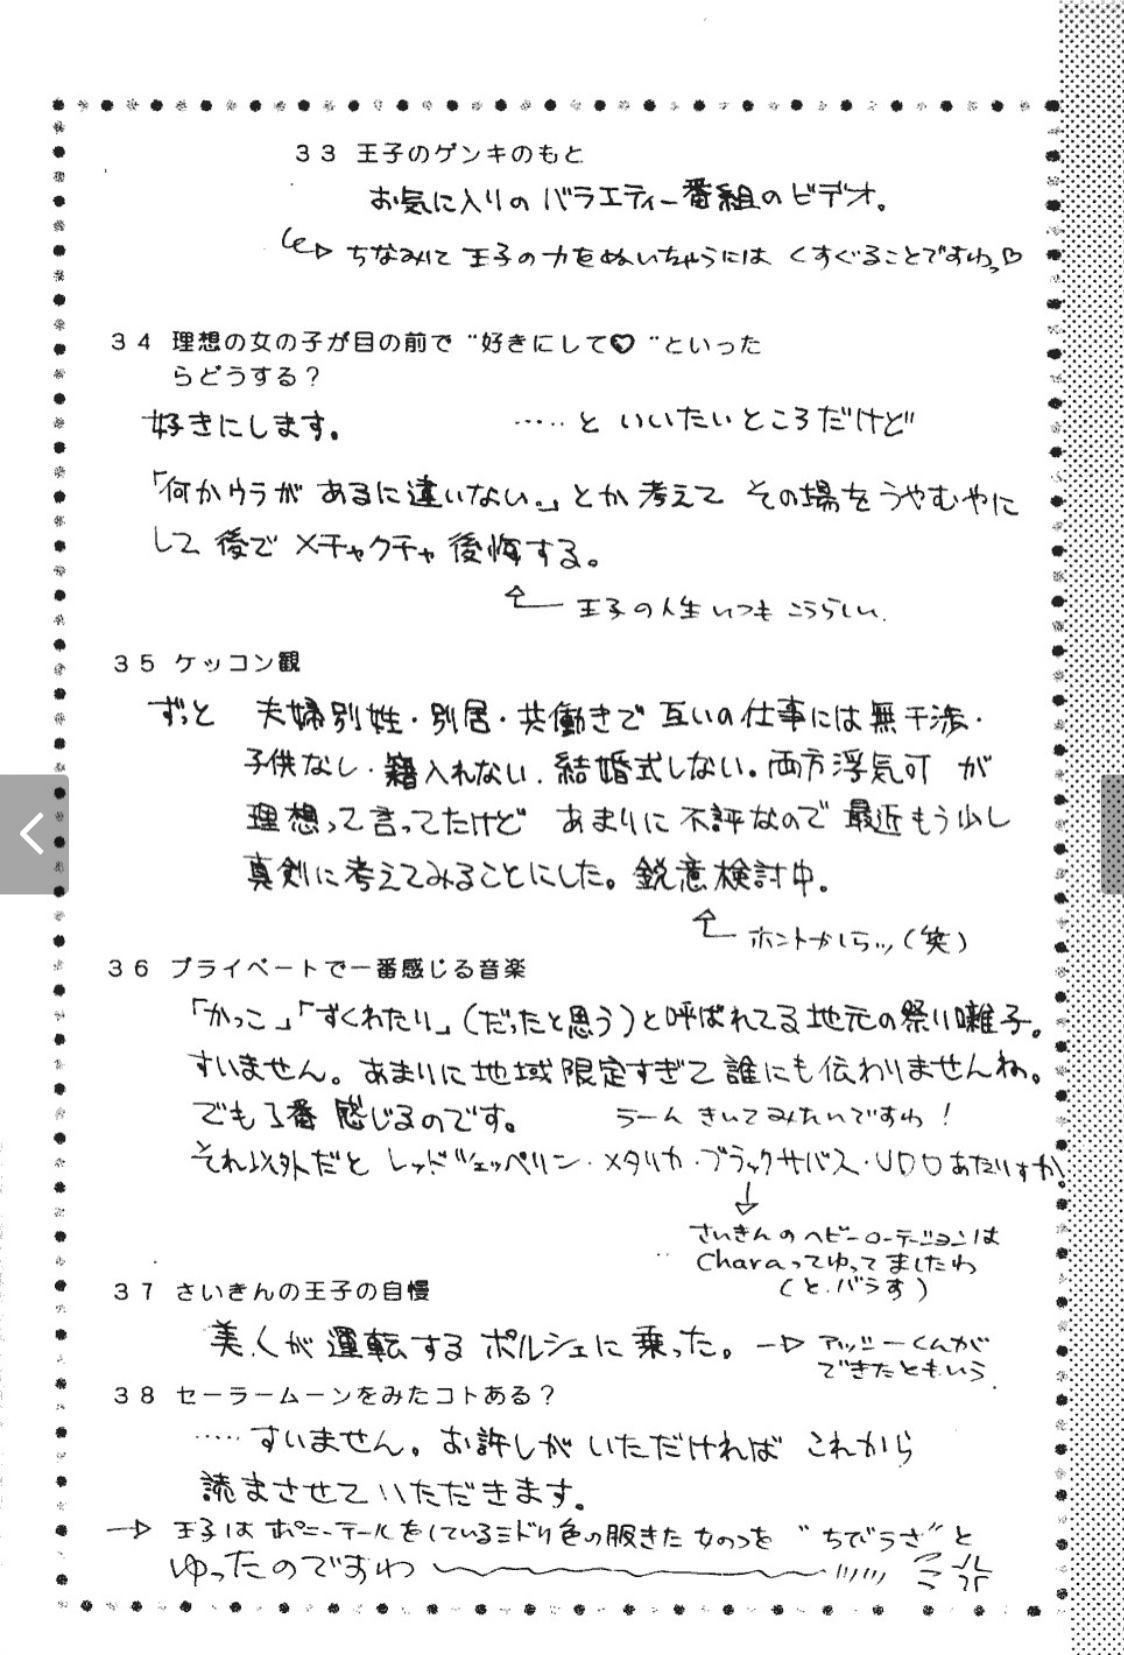 33 王子のゲンキのもと
お気に入りの バラエティー番組の ビデオ。
ちなみに 王子の力をぬいちゃうには くすぐることですわっ♡
34 理想の女の子が目の前で "好きにして♡ "といった
らどうする?
好きにします。 ‥‥‥と いいたいところだけど
「何かウラが あるに違いない。」とか 考えて その場を うやむやに
して 後で メチャクチャ 後悔する。
王子の人生 いつも こうらしい.
35 ケッコン観
ずっと 夫婦別姓・別居・共働きで 互いの仕事には無干渉・
子供なし・籍入れない. 結婚式しない。両方浮気可 が
理想って言ってたけど あまりに不評なので 最近もう少し
真剣に考えてみることにした。鋭意検討中。
ホントかしらッ(笑)
36 プライベートで一番感じる音楽
「かっこ」「ずくれたり」(だったと思う)と呼ばれてる 地元の祭り囃子。
すいません。あまりに地域限定すぎて 誰にも伝わりませんね。
でも1番 感じるのです。 うーん きいてみたいですわ!
それ以外だと レッドツェッペリン・メタリカ・ブラックサバス・UDOあたりすか。
さいきんの ヘビーローテーションは
Charaってゆってましたわ
(と.バラす)
37 さいきんの王子の自慢
美人が 運転する ポルシェに 乗った。 アッシーくんが
できたともいう.
38 セーラームーンをみたコトある?
‥‥‥すいません。お許しが いただければ これから
読まさせていただきます。
王子は ポニーテールをしているミドリ色の服きた 女のコを "ちびうさ"と
ゆったのですわ